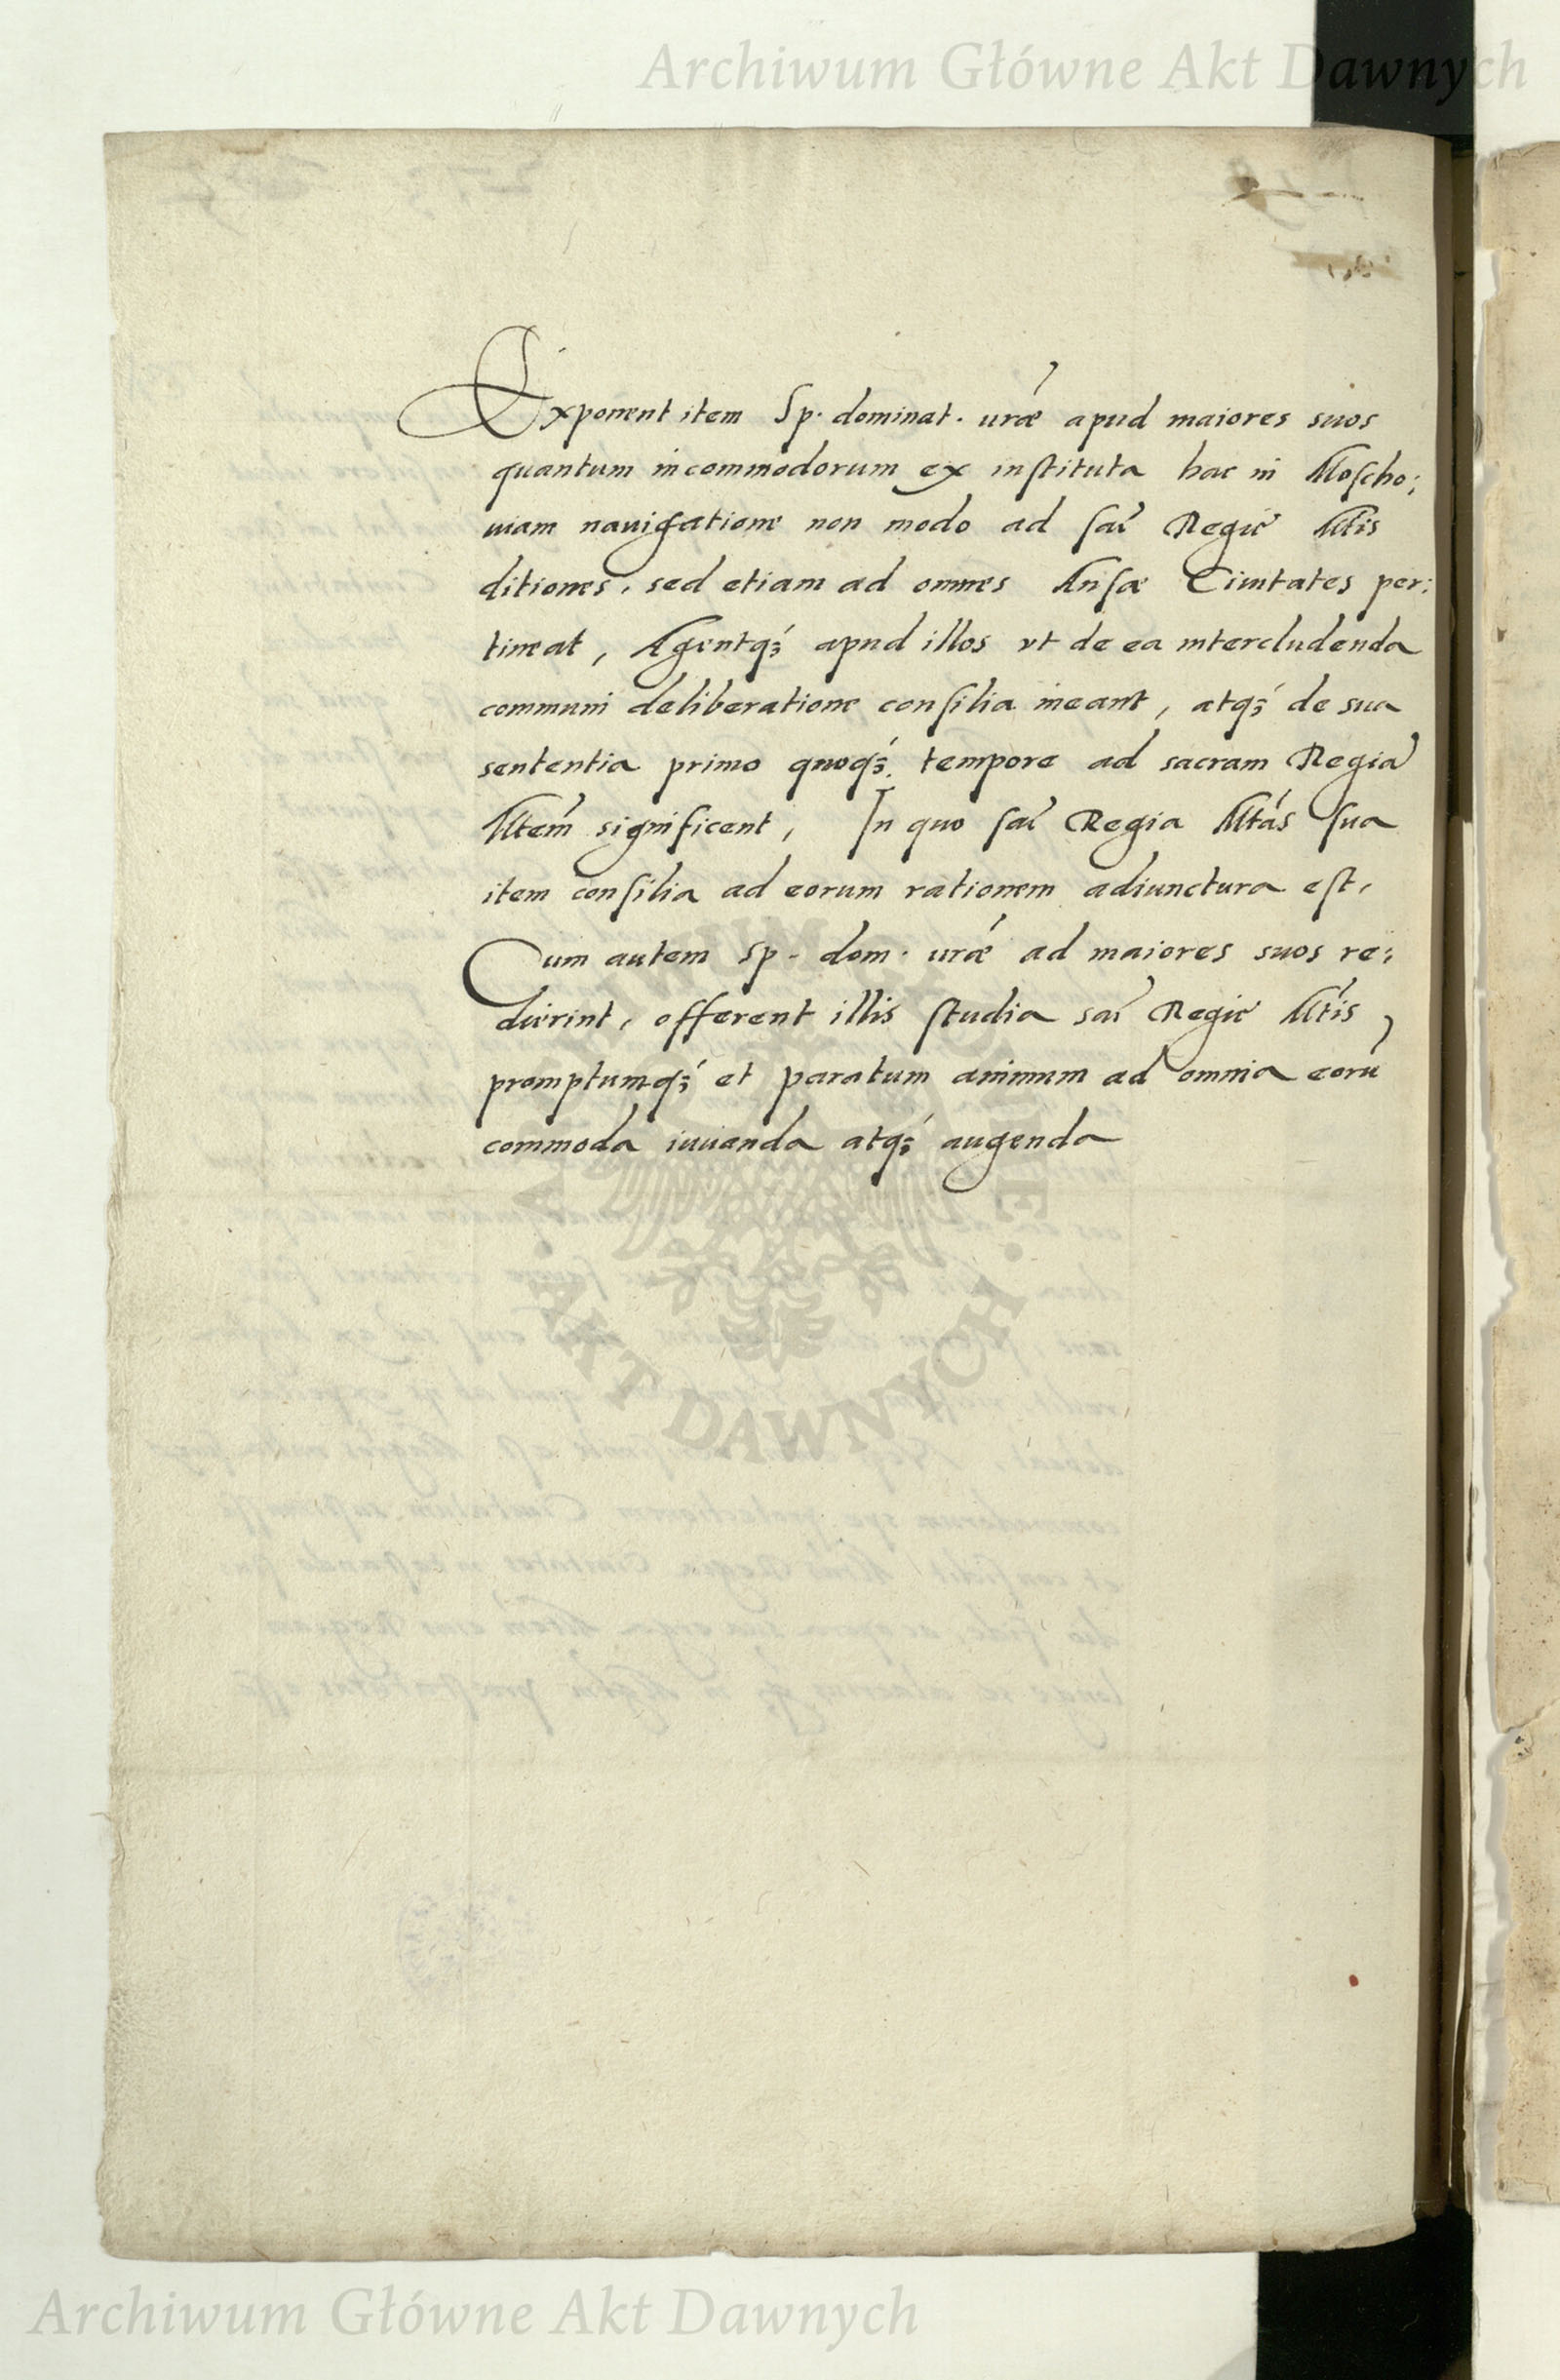 Archiwum Główne Akt Dawnych
Exponent item Sp. dominat. urǽ apud maiores suos
quantum incommodorum ex instituta hac in Moscho:
uiam nauigatione non modo ad sac̃ Regiẽ Mtis
ditiones, sed etiam ad omnes Ansæ Ciuitates per:
tineat, Agentq́ꝫ apud illos vt de ea intercludenda
communi deliberatione consilia ineant, atq́ꝫ de sua
sententia primo quoq́ꝫ tempore ad sacram Regiã
Mtem̃ significent, In quo sac̃ Regia Mtás sua
item consilia ad eorum rationem adiunctura est,
Cum autem Sp. dom. urǽ ad maiores suos re:
dierint, offerent illis studia sac̃ Regiẽ Mtis,
promptumq́ꝫ et paratum animum ad omnia eorũ
commoda iuuanda atq́ꝫ augenda
ARCHIWUM GŁÓWNE · AKT DAWNYCH ·
Archiwum Główne Akt Dawnych